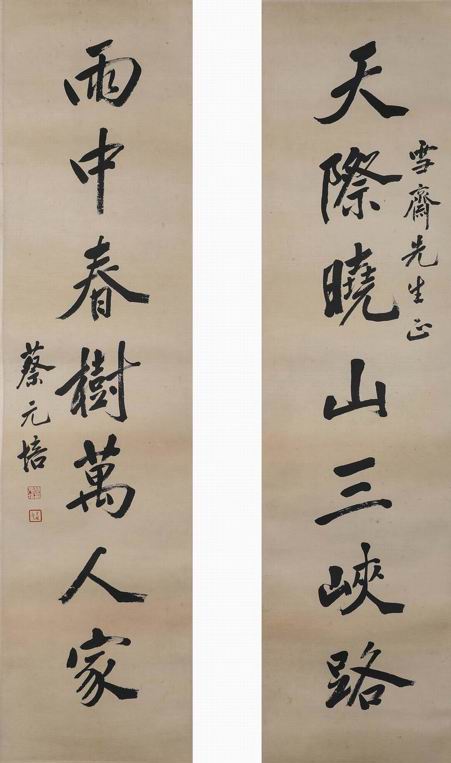 天際曉山三峽路
雪齋先生正
雨中春樹萬人家
蔡元培